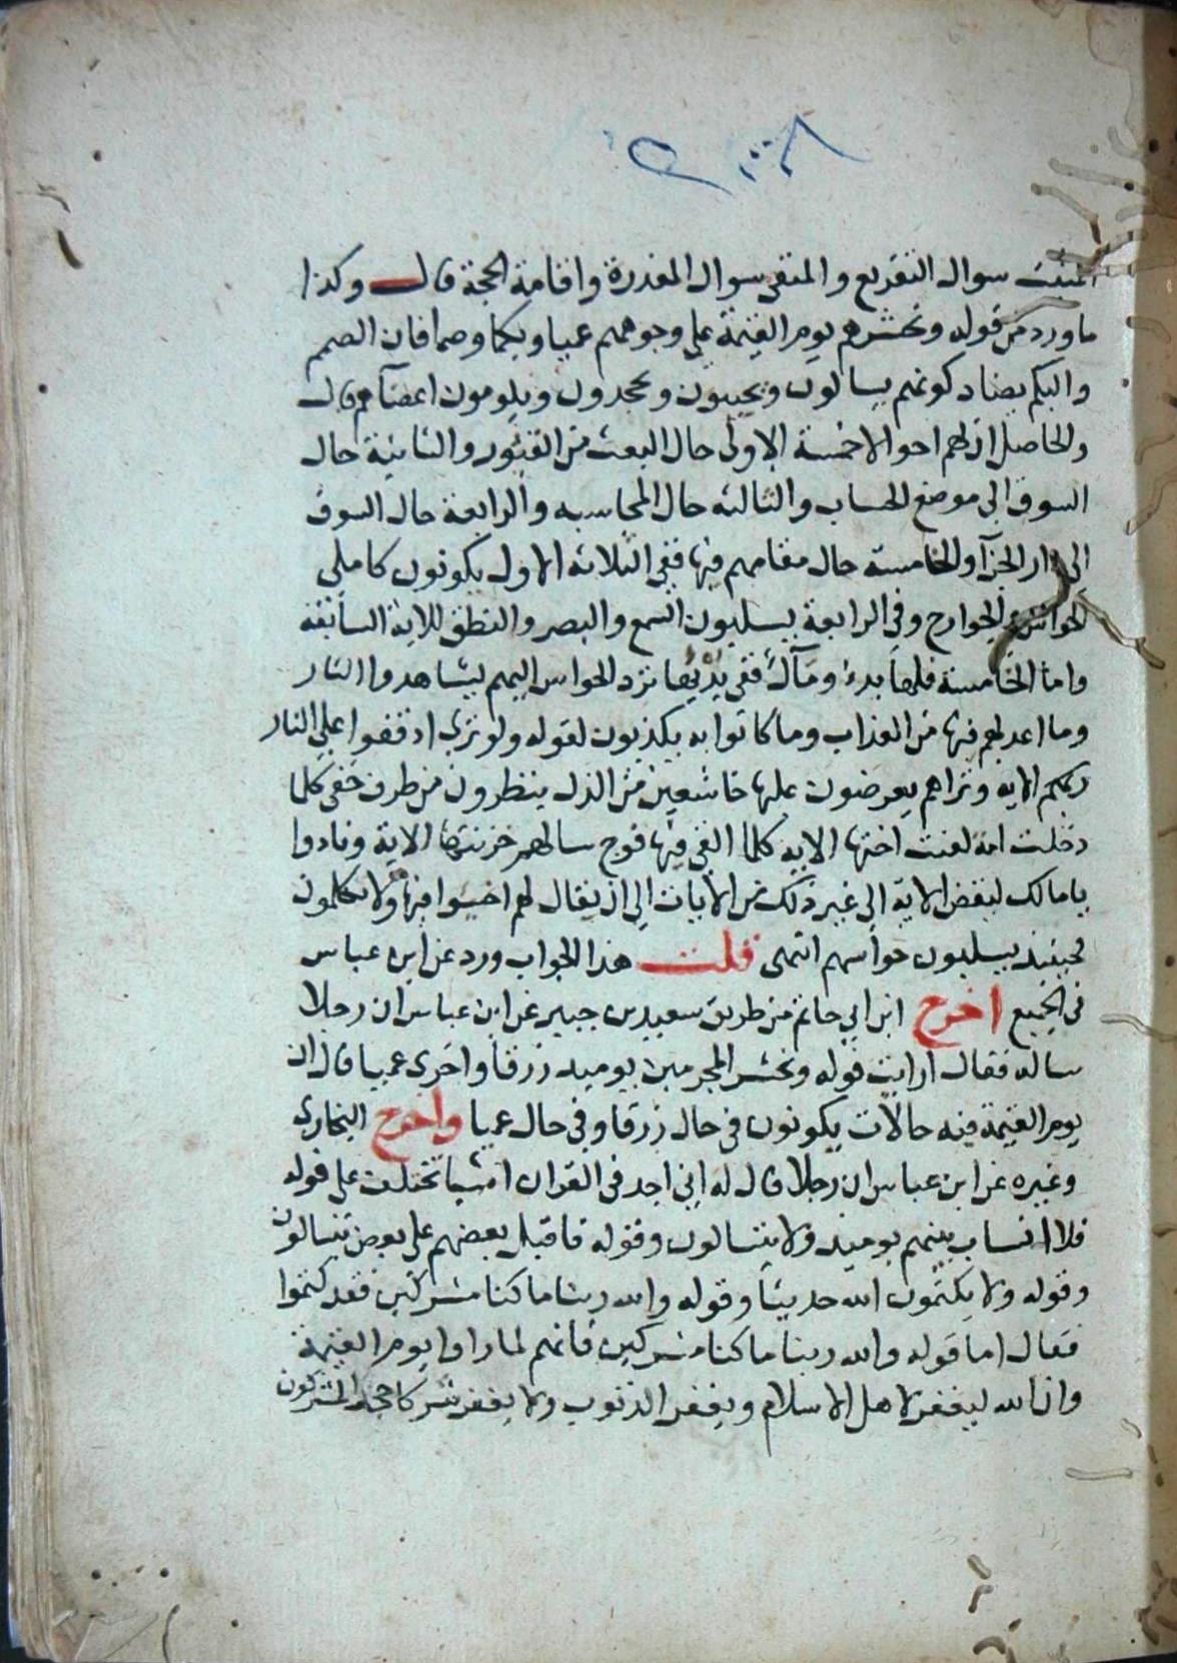 المثبت سوال التقريع والمنفى سوال المعذرة واقامة الحجة قال وكذا
ما ورد من قوله ونحشرهم يوم القيمة على وجوههم عميا وبكما وصما فان الصمم
والبكم يضاد كونهم يسالون ويجيبون ويجحدون ويلومون اعضآهم قال
والحاصل ان لهم احوالا خمسة الاولى حال البعث من القبور والثانية حال
السوق الى موضع الحساب والثالثه حال المحاسبه والرابعة حال السوق
الى دار الجزآ والخامسة حال مقامهم فيها ففي الثلاثة الاول يكونون كاملي
الحواس والجوارح وفي الرابعة يسلبون السمع والبصر والنطق للاية السابقة
واما الخامسة فلها بدء ومآل ففي بدئها ترد الحواس اليهم ليشاهدوا النار
وما اعد لهم فيها من العذاب وما كانوا به يكذبون لقوله ولو ترى اذ وقفوا على النار
الايه وتراهم يعرضون عليها خاشعين من الذل ينظرون من طرف خفي كلما
دخلت امة لعنت اختها الايه كلما القي فيها فوج سالهم خزنتها الاية ونادوا
يا مالك ليقض الاية الى غير ذلك من الايات الى ان يقال لهم اخسئوا فيها ولا تكلمون
فحينئذ يسلبون حواسهم انتهى قلت هذا الجواب ورد عن ابن عباس
في الجميع اخرج ابن ابي حاتم من طريق سعيد بن جبير عن ابن عباس ان رجلا
ساله فقال ارايت قوله ونحشر المجرمين يوميذ زرقا واخرى عميا قال ان
يوم القيمة فيه حالات يكونون في حال زرقا وفي حال عميا واخرج البخارى
وغيره عن ابن عباس ان رجلا قال له اني اجد في القران اشيا تختلف على قوله
فلا انساب بينهم يوميذ ولا يتسالون وقوله فاقبل بعضهم على بعض يتسالون
وقوله ولا يكتمون الله حديثا وقوله والله ربنا ما كنا مشركين فقد كتموا
فقال اما قوله والله ربنا ما كنا مشركين فانهم لما راوا يوم القيمة
وان الله ليغفر لاهل الاسلام ويغفر الذنوب ولا يغفر شركا جحد المشركون